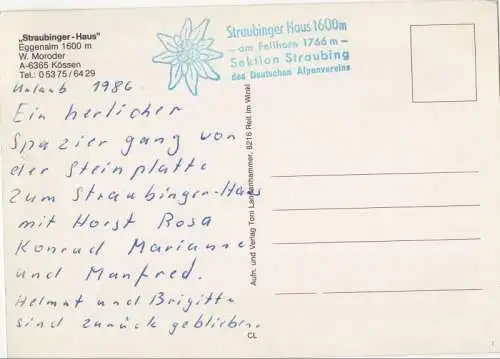 „Straubinger-Haus"
Eggenalm 1600 m
W. Moroder
A-6365 Kössen
Tel.: 0 53 75 / 64 29
Straubinger Haus 1600m
— am Fellhorn 1766 m —
Sektion Straubing
des Deutschen Alpenvereins
Urlaub 1986
Ein herlicher
Spazier gang von
der Steinplatte
zum Straubinger-Haus
mit Horst Rosa
Konrad Marianne
und Manfred.
Helmut und Brigitta
sind zurück geblieben.
Aufn. und Verlag Toni Lackenhammer, 8216 Reit im Winkl
CL